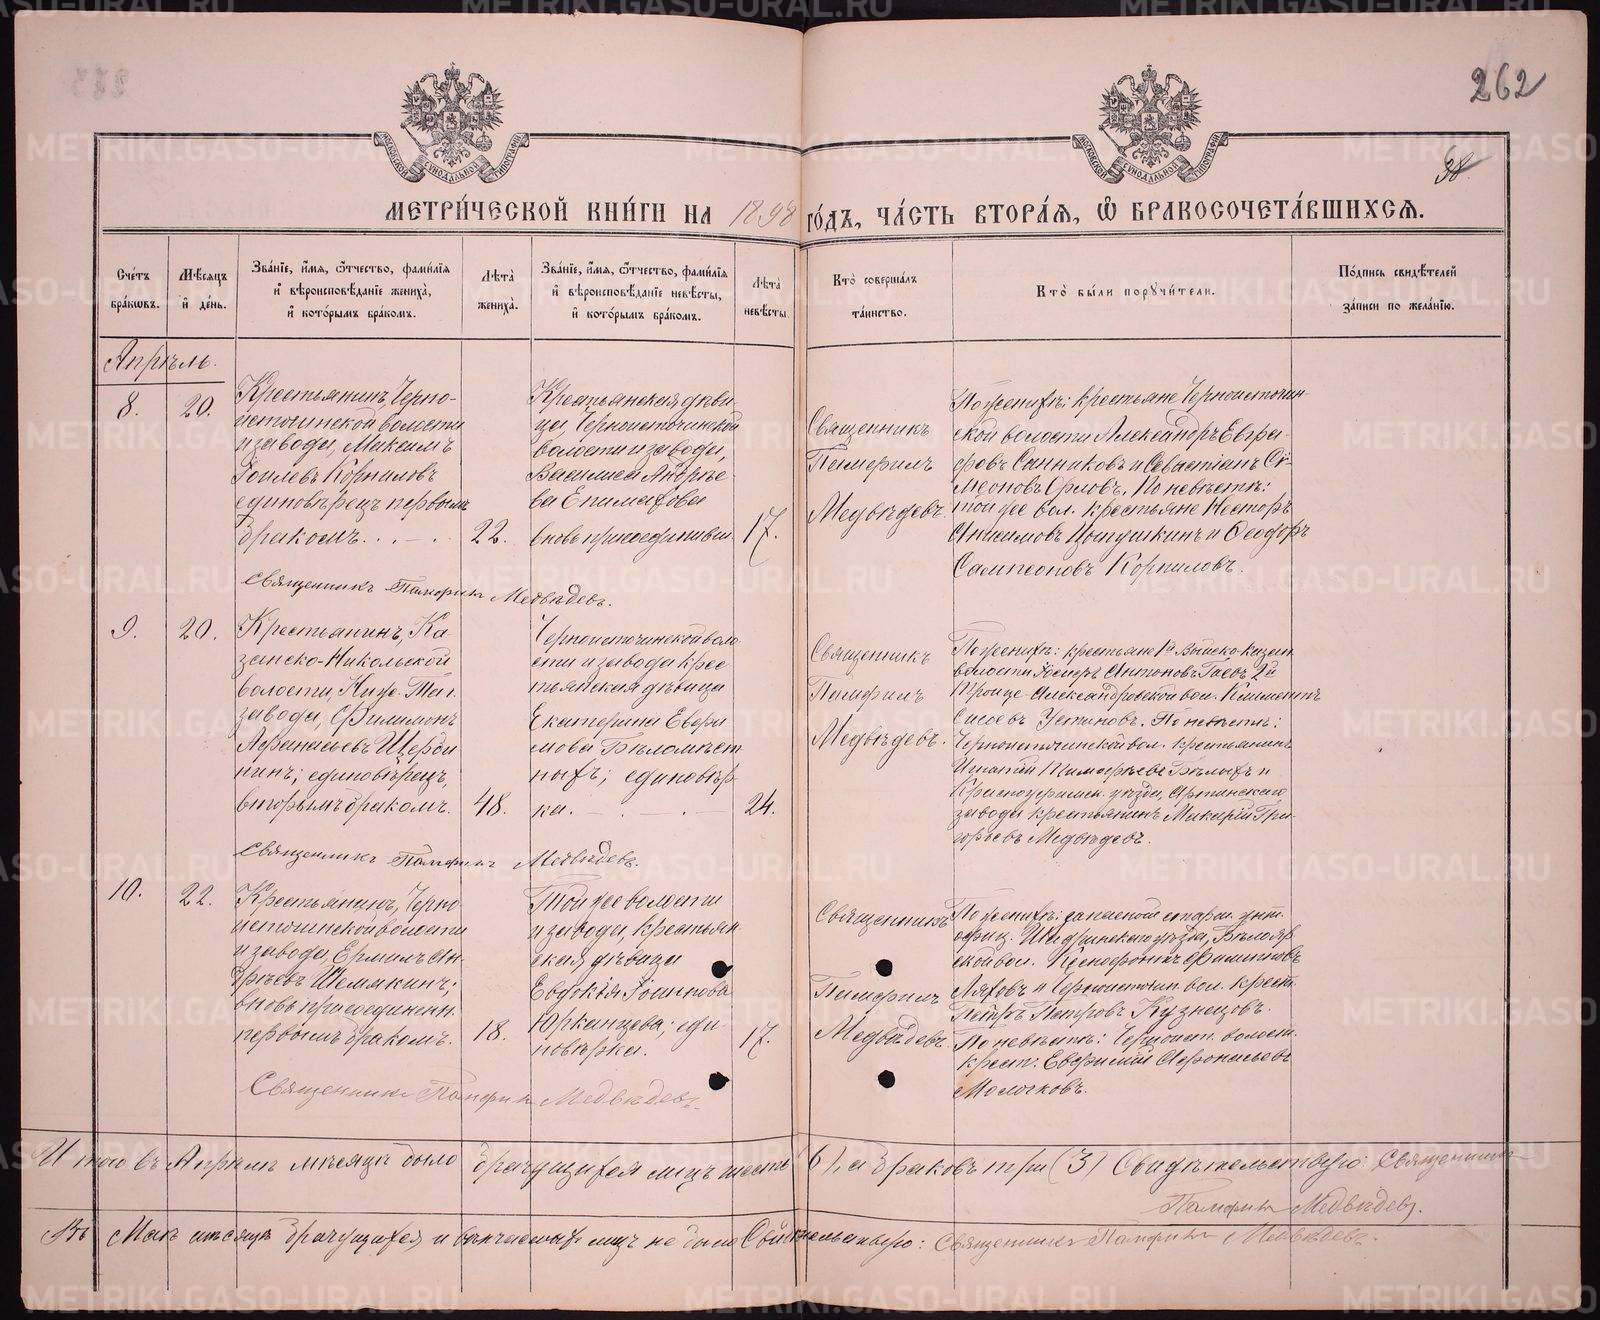 262
38
МОСКОВСКОЙ СѴНОДАЛЬНОЙ ТИПОГРАФІИ
МОСКОВСКОЙ СѴНОДАЛЬНОЙ ТИПОГРАФІИ
МЕТРИ́ЧЕСКОЙ КНИ́ГИ НА 1898 ГО́ДЪ, ЧА́СТЬ ВТОРА́Я, Ѽ БРАКОСОЧЕТА́ВШИХСЯ.
Сче́тъ бра́кѡвъ.
Мѣ́сяцъ и҆ де́нь.
Зва́нїе, и҆́мя, ѻ҆́тчество, фами́лїя и҆ вѣроисповѣ́данїе жениха̀, и҆ кото́рымъ бра́комъ.
Лѣ́та жениха̀.
Зва́нїе, и҆́мя, ѻ҆́тчество, фами́лїя и҆ вѣроисповѣ́данїе невѣ́сты, и҆ кото́рымъ бра́комъ.
Лѣ́та невѣ́сты.
Кто̀ соверша́лъ та́инство.
Кто̀ бы́ли порꙋчи́тели.
По́дпись свидѣ́телей за́писи по жела́нїю.
Апрѣль.
8.
20.
Крестьянинъ, Черно-
источинской волости
и завода, Максимъ
Корниловъ
единовѣрецъ первымъ
бракомъ.
22.
Крестьянская дѣви-
ца, Черноисточинской
волости и завода,
Василиса Андрѣе-
ва Епимахова
вновь присоединивш.
17.
Священникъ
Памфилъ
Медвѣдевъ.
По женихѣ: крестьяне Черноисточин-
ской волости Александръ Евгра-
фовъ Санниковъ и Севастіанъ Сі-
меоновъ Орловъ. По невѣстѣ:
той же вол. крестьяне Несторъ
Анисимовъ и Ѳеодоръ
Сампсоновъ Корниловъ.
Священникъ Памфилъ Медвѣдевъ.
9.
20.
Крестьянинъ, Ка-
занско-Никольской
волости, Ниж. Таг.
завода, Филимонъ
Афанасьевъ Щерби
нинъ; единовѣрецъ,
вторымъ бракомъ.
48.
Черноисточинской воло
сти и завода крес
тьянская дѣвица
Екатерина Евфи
мова Бѣломѣст
ныхъ; единовѣр
ка.
24.
Священникъ
Памфилъ
Медвѣдевъ.
По женихѣ: крестьяне 1й Выйско-
волости Антоновъ Гаевъ, 2й
Троице-Александровской вол. Климентъ
Сысоевъ Устиновъ. По невѣстѣ:
Черноисточинской вол. крестьянинъ
Игнатій Тимофѣевъ Бѣлыхъ и
Красноуфимск. уѣзда, Артинскаго
завода крестьянинъ Макарій Гри-
горьевъ Медвѣдевъ.
Священникъ Памфилъ Медвѣдевъ.
10.
22.
Крестьянинъ, Черно-
источинской волости
и завода, Ермилъ Ан-
дрѣевъ Шемякинъ;
вновь присоединенн.
первымъ бракомъ.
18.
Той же волости
и завода, крестьян
ская дѣвица
Евдокія Іоакимова
Юрканцева; еди-
новѣрка.
17.
Священникъ
Памфилъ
Медвѣдевъ.
По женихѣ: запасной старш. унт.
офиц. Шадринскаго уѣзда, Бѣлояр
ской вол. Ксенофонтъ Филиповъ
Ляховъ и Черноисточин. вол. крест.
Петръ Петровъ Кузнецовъ.
По невѣстѣ: Черноист. волост.
крест. Евфимій Афонасьевъ
Молочковъ.
Священникъ Памфилъ Медвѣдевъ.
Итого въ Апрѣлѣ мѣсяцѣ было брачущихся лицъ шесть (6), а браковъ три (3) Свидѣтельствую: Священникъ
Памфилъ Медвѣдевъ.
Въ Маѣ мѣсяцѣ брачущихся и вѣнчаемыхъ лицъ не было Свидѣтельствую: Священникъ Памфилъ Медвѣдевъ.
METRIKI.GASO-URAL.RU